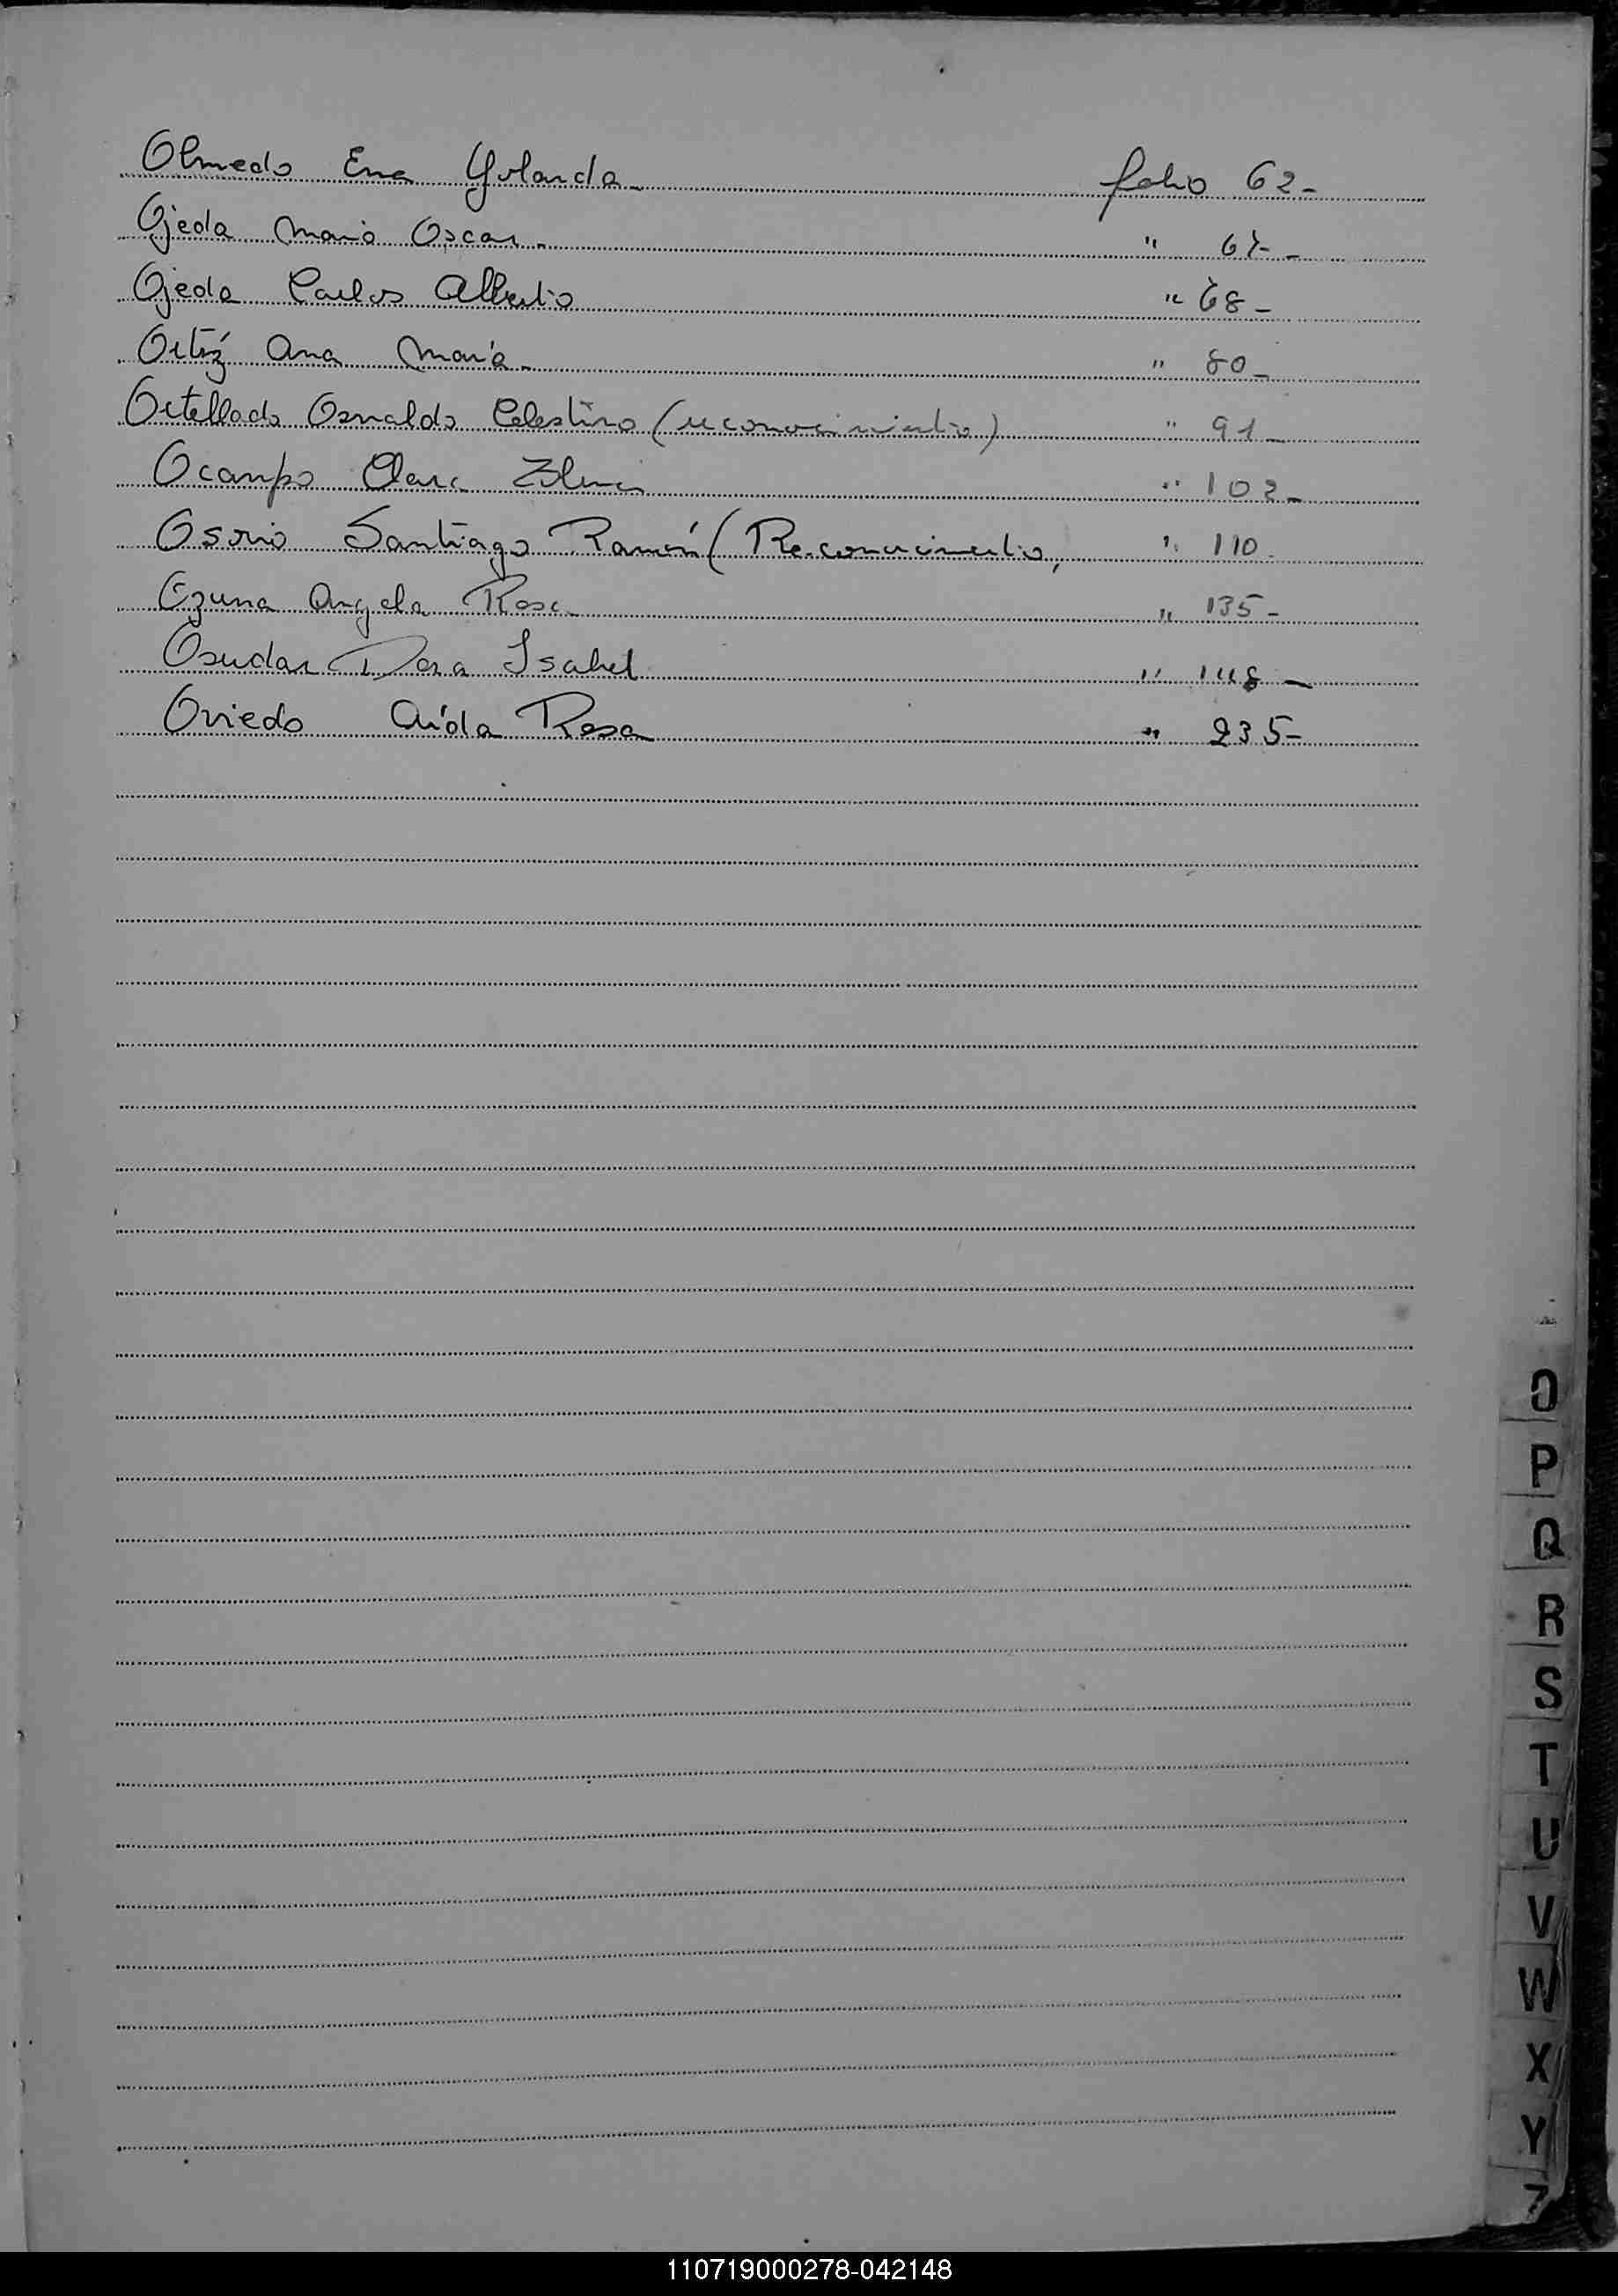 Olmedo Ena Yolanda folio 62-
Ojeda Mario Oscar. " 67-
Ojeda Carlos Alberto " 68-
Ortíz Ana María. " 80-
Ortellado Osvaldo Celestino (reconocimiento) " 91-
Ocampo Clara " 102-
Osorio Santiago Ramón (Reconocimiento, " 110.
Ozuna Angela Rosa " 135-
Osudar Dora Isabel " 148-
Oviedo Aída Rosa " 235-
O
P
Q
R
S
T
U
V
W
X
Y
Z
110719000278-042148